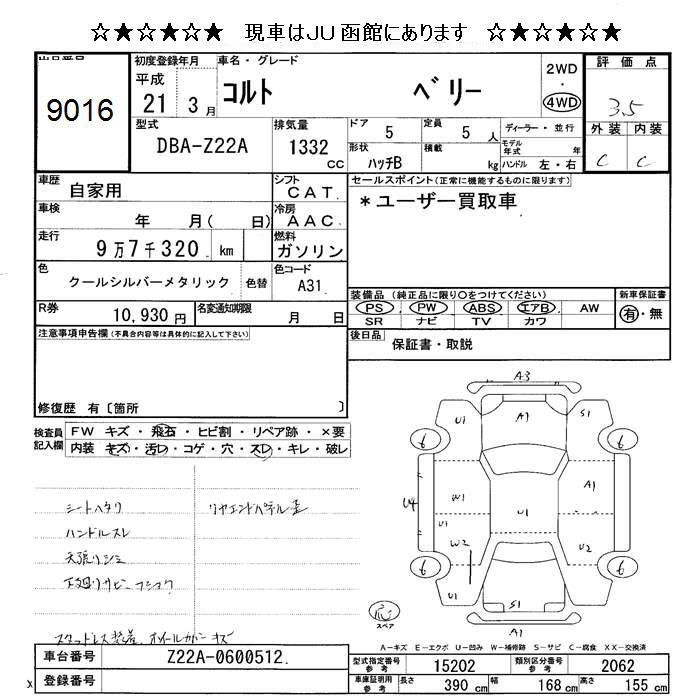 ☆★☆★☆★ 現車はJU函館にあります ☆★☆★☆★
出品番号
9016
初度登録年月
平成
21 3月
車名・グレード
コルト ベリー
2WD
・
4WD
評価点
3.5
外装 内装
C C
型式
DBA-Z22A
排気量
1332
cc
ドア
5
定員
5 人
形状
ハッチB
積載
kg
ディーラー・並行
モデル年式 年
ハンドル 左・右
車歴
自家用
シフト
CAT
車検
年 月( 日)
冷房
AAC
走行
9万7千320 km
燃料
ガソリン
色
クールシルバーメタリック
色替
色コード
A31
R券
10,930円
名変通知期限
月 日
セールスポイント(正常に機能するものに限ります)
*ユーザー買取車
装備品(純正品に限り〇をつけてください)
PS PW ABS エアB AW
SR ナビ TV カワ
新車保証書
有・無
後日品
保証書・取説
注意事項申告欄(不具合内容等は具体的に記入して下さい)
修復歴 有〔箇所 〕
検査員記入欄
FW キズ・飛石・ヒビ割・リペア跡・×要
内装 キズ・汚レ・コゲ・穴・スレ・キレ・破レ
シートヘタリ
リヤエンドパネル歪
ハンドルスレ
天張りシミ
下廻りサビ
スタッドレス装着 ホイールカバーキズ
A3
U1 A1 S1
6 6
U4 W1 A1
U1 U1
W2 U2
6 6
U1 S1
A1
応
スペア
A-キズ E-エクボ U-凹み W-補修跡 S-サビ C-腐食 XX-交換済
車台番号
Z22A-0600512
登録番号
型式指定番号
参考
15202
類別区分番号
参考
2062
車庫証明用
参考
長さ
390 cm
幅
168 cm
高さ
155 cm
x